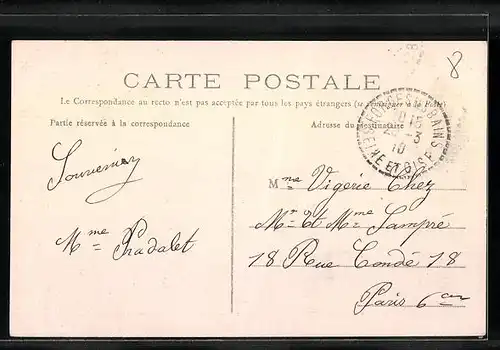 8
CARTE POSTALE
Le Correspondance au recto n'est pas acceptée par tous les pays étrangers (se renseigner à la Poste)
Partie réservée à la correspondance
Adresse du destinataire
FORGES-LES-BAINS
10 15
3
10
SEINE ET OISE
Souvenir
Mme Pradalet
Mme Vigerie Chez
Mr et Mme Sampré
18 Rue Condé 18
Paris 6em